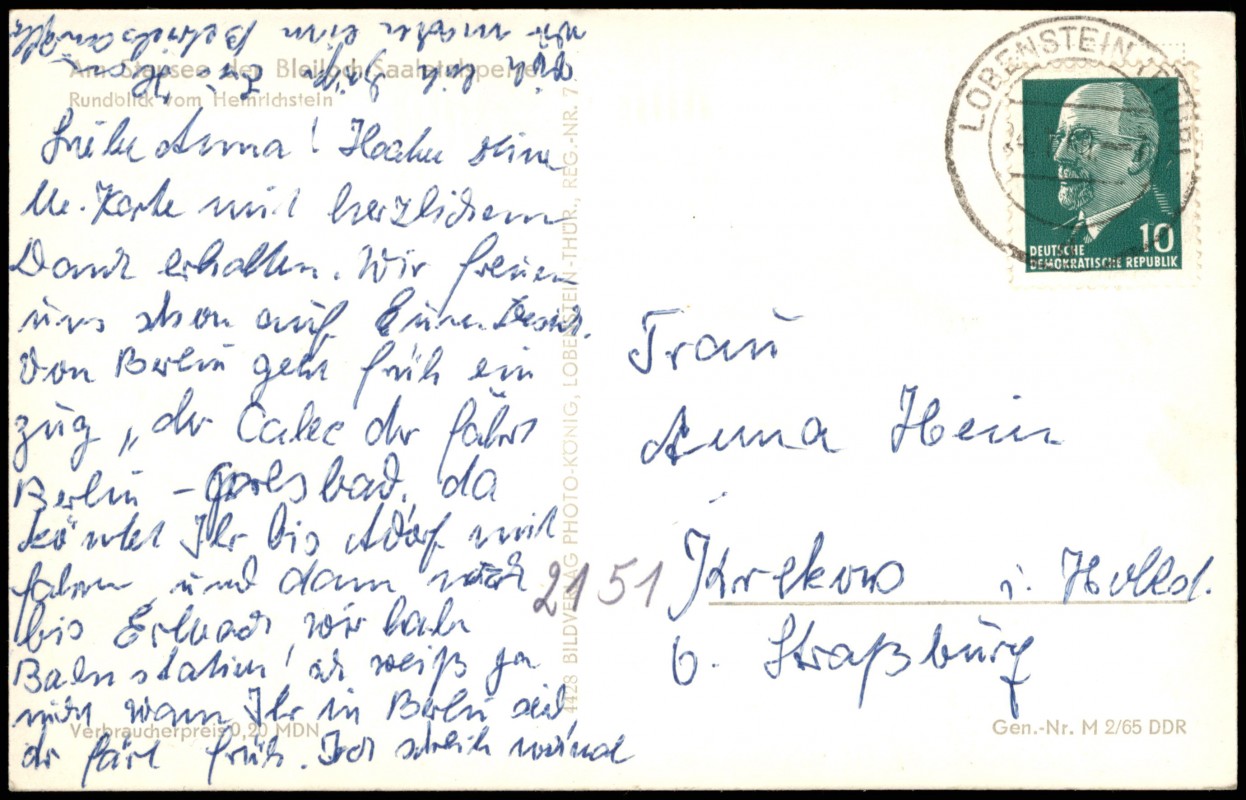 Am Stausee der Bleiloch-Saaletalsperre
Rundblick vom Heinrichstein
Liebe Anna! Habe deine
lb. Karte mit herzlichem
Dank erhalten. Wir freuen
uns schon auf Euren Besuch.
Von Berlin geht früh ein
Zug „der Calex der fährt
Berlin - Karlsbad, da
könntet Ihr bis Adorf mit
fahren und dann nach
bis Erlbach, wir habe
Bahnstation, ich weiß ja
nicht wann Ihr in Berlin seid,
der färt früh. Ich schreib nochmal
wir machen einen
LOBENSTEIN (THÜR)
DEUTSCHE
DEMOKRATISCHE REPUBLIK
10
Frau
Anna Hein
2151 Krekow i. Meckl.
b. Straßburg
4428 BILDVERLAG PHOTO-KÖNIG, LOBENSTEIN-THÜR., REG.-NR. 7
Verbraucherpreis 0,20 MDN
Gen.-Nr. M 2/65 DDR